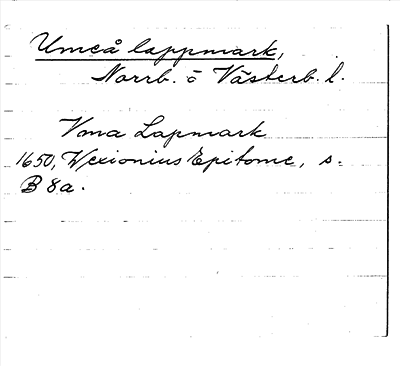 Umeå lappmark,
Norrb. o Västerb. l.
Vma Lapmark
1650, Wexionius Epitome, s.
B 8a.